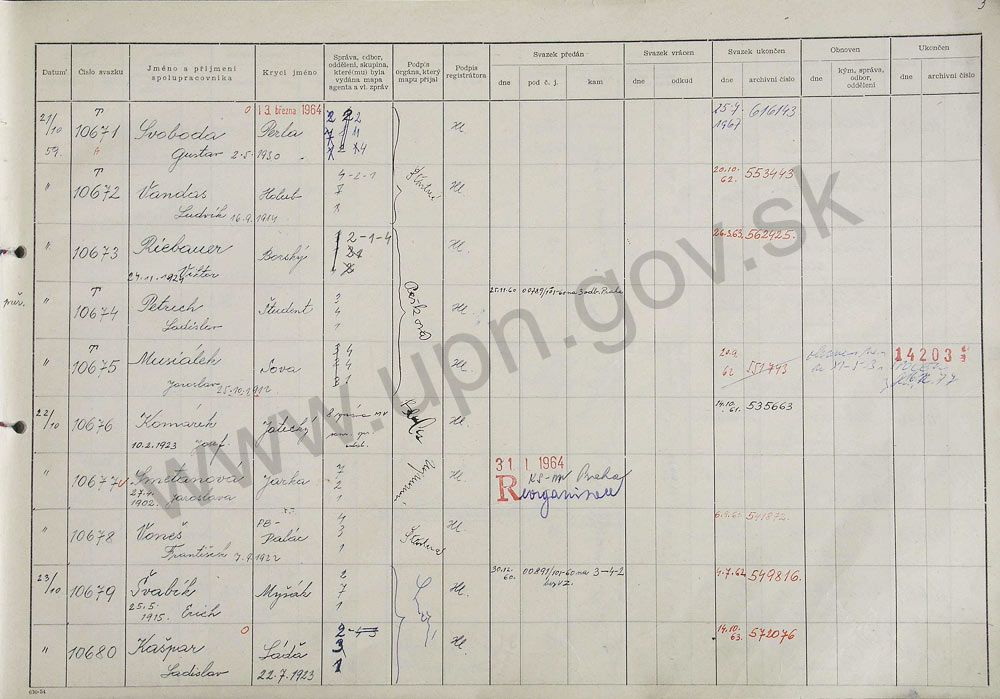 3
Datum
Číslo svazku
Jméno a příjmení
spolupracovníka
Krycí jméno
Správa, odbor,
oddělení, skupina,
které(mu) byla
vydána mapa
agenta a vl. zpráv
Podpis
orgána, který
mapu přijal
Podpis
registrátora
Svazek předán
dne
pod č. j.
kam
Svazek vrácen
dne
odkud
Svazek ukončen
dne
archivní číslo
Obnoven
dne
kým, správa,
odbor,
oddělení
Ukončen
dne
archivní číslo
21/10 59. T 10671 A
Svoboda
Gustav 2.5.1930
13. března 1964
Perla
Hl.
25.7. 1967 616143
" T 10672
Vandas
Ludvík 16.9.1914
Holub
4-2-1
Hl.
20.10. 62. 553443
" 10673
Riebauer
24.11.1924 Viktor
Borský
2-1-4
Hl.
26.3.63. 562425.
" T 10674
Petrich
Ladislav
Student
3
4
1
Hl.
25.11.60. 00789/101-60na 3odb. Praha
" T 10675
Musiálek
Jaroslav 25.10.1912
Sova
Hl.
20.9. 62 551793
14203
22/10 10676
Komárek
10.2.1923 Josef
Hl.
14.10. 61. 535663
" 10677
Smetanová
1902. Jaroslava
Jarka
7
2
1
Hl.
31 1 1964
KS-MV Praha
Reorganisace
" 10678
Voneš
František 7.9.1922
PB-
Palác
4
3
1
Hl.
541872.
23/10 10679
Švabík
25.5. 1915. Erich
Myšák
2
7
1
Hl.
30.12. 60. 00891/101-60na 3-4-2
4.7.62 549816.
" 10680
Kašpar
Ladislav
Láďa
22.7.1923
2-4-3
3
1
Hl.
14.10. 63. 572076
www.upn.gov.sk